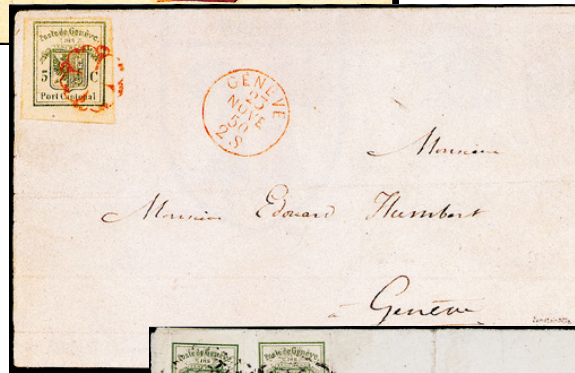 Poste de Genève
5 C
Port Cantonal
GENÈVE
25
NOVE
50
2 S
Monsieur
Monsieur Edouard Humbert
à Genève
Poste de Genève
Poste de Genève